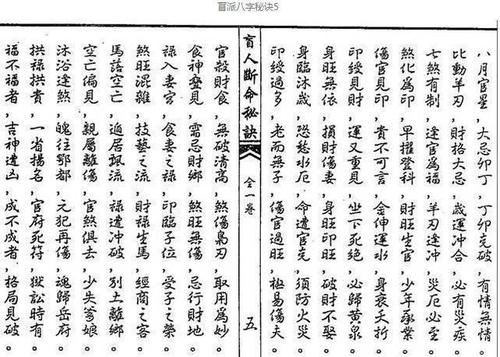 盲派八字秘诀5
八月官星，大忌卯丁，丁卯克破，有情無情。
比動羊刃，財格大忌，歲運冲合，必有災疾。
七煞有制，逢官為福，羊刃逢冲，災厄必至。
煞化為印，早擢登科，財旺生官，少年承業。
傷官見印，貴不可言，金伸運水，身衰夭折。
印綬見財，運又重見，坐下死絕，必歸黃泉。
身旺無依，損財傷妻，身旺印旺，破財不聚。
身臨沐歲，恐殃水厄，命遭官克，須防火災。
印綬過多，老而無子，傷官過旺，極易傷夫。
盲人斷命秘訣 全一卷 五
官殺財食，無破清高，煞傷梟刃，取用為妙。
食神疊見，需忌財鄉，煞旺無傷，忌行財地。
祿入妻宮，食妻之祿，印臨子位，受子之榮。
煞旺混雜，技藝之流，財祿坐馬，經商之客。
馬落空亡，遁居飄流，祿遭冲破，別土離鄉。
空亡偏見，親屬離傷，官煞俱去，少失爹娘。
沐浴逢煞，魄往鄷都，元犯再傷，魂歸岳府。
拱祿拱貴，一省揚名，官府死符，獄訟時有。
福不福者，吉神遭凶，成不成者，格局見破。